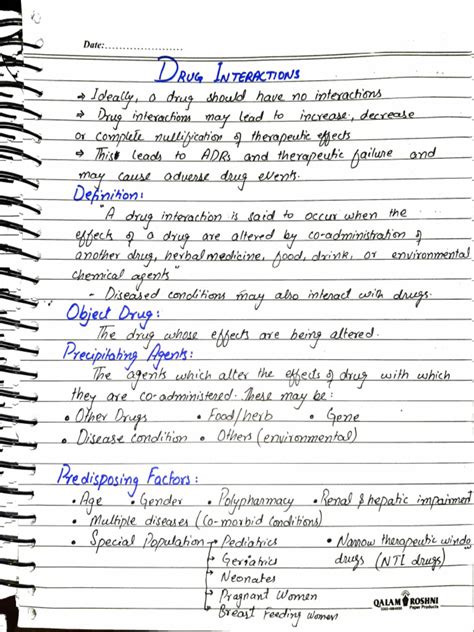 Date:....................
DRUG INTERACTIONS
→ Ideally, a drug should have no interactions
→ Drug interactions may lead to increase, decrease
or complete nullification of therapeutic effects
→ This leads to ADRs and therapeutic failure and
may cause adverse drug events.
Definition:
"A drug interaction is said to occur when the
effects of a drug are altered by co-administration of
another drug, herbal medicine, food, drink, or environmental
chemical agents"
- Diseased conditions may also interact with drugs.
Object Drug:
The drug whose effects are being altered.
Precipitating Agents:
The agents which alter the effects of drug with which
they are co-administered. These may be:
• Other Drugs • Food/herb • Gene
• Disease condition • Others (environmental)
Predisposing Factors:
• Age • Gender • Polypharmacy • Renal & hepatic impairment
• Multiple diseases (Co-morbid conditions)
• Special Population → Pediatrics • Narrow therapeutic windo
→ Geriatrics drugs (NTI drugs)
→ Neonates
→ Pragnant Women
→ Breast Feeding Women
QALAM ROSHNI
Paper Products